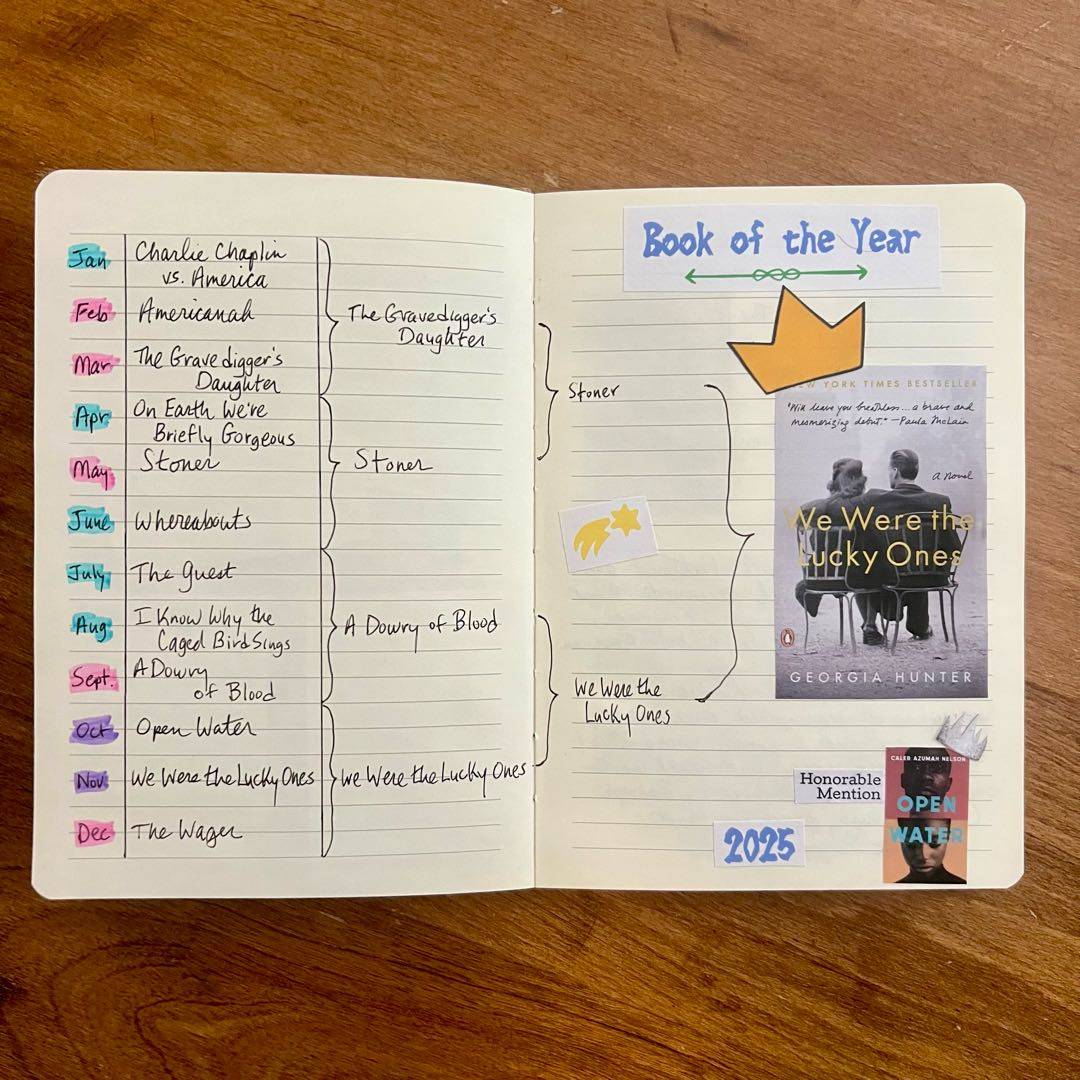 Jan
Charlie Chaplin
vs. America
Feb
Americanah
Mar
The Gravedigger's
Daughter
Apr
On Earth We're
Briefly Gorgeous
May
Stoner
June
Whereabouts
July
The Guest
Aug
I Know Why the
Caged Bird Sings
Sept.
A Dowry
of Blood
Oct
Open Water
Nov
We Were the Lucky Ones
Dec
The Wager
The Gravedigger's
Daughter
Stoner
A Dowry of Blood
We Were the Lucky Ones
Stoner
We Were the
Lucky Ones
Book of the Year
NEW YORK TIMES BESTSELLER
"Will leave you breathless...a brave and
mesmerizing debut." —Paula McLain
A Novel
We Were the
Lucky Ones
GEORGIA HUNTER
Honorable
Mention
CALEB AZUMAH NELSON
OPEN
WATER
2025